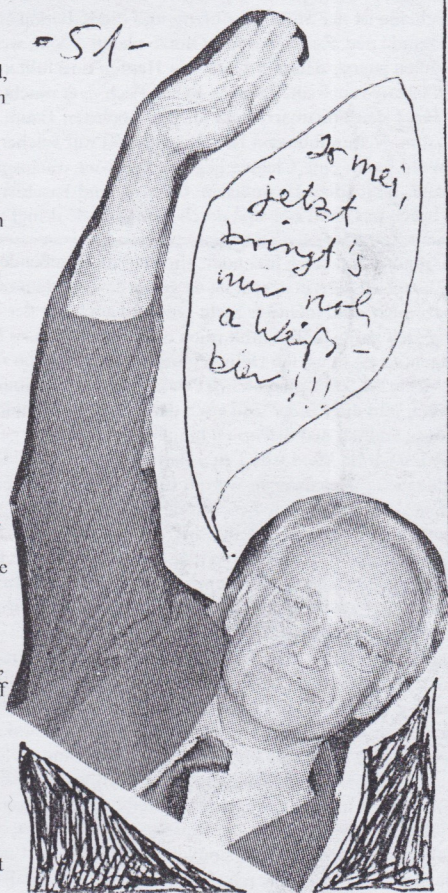 -51-
Jo mei,
jetzt
bringt's
nur noch
a Weiß-
bier!!!